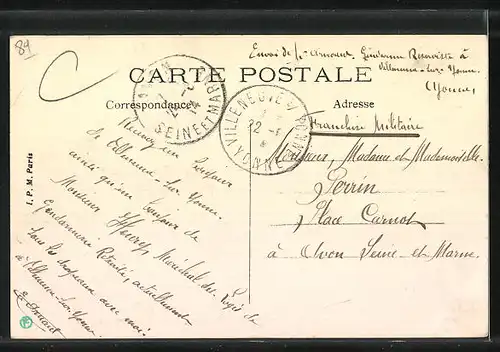 89
Envoi de
Gendarme Réserviste à
Villeneuve-sur-Yonne
(Yonne)
CARTE POSTALE
Correspondance
Adresse
SEINE ET MARNE
VILLENEUVE S/ YONNE
22
YONNE
Franchise Militaire
Monsieur, Madame et Mademoiselle
Perrin
Place Carnot
à Avon Seine-et-Marne.
Recevez un bonjour
de Villeneuve-sur-Yonne
ainsi qu'un bonjour de
Monsieur Maréchal des Logis de
Gendarmerie Retraité, actuellement
sous les drapeaux avec moi
à Villeneuve-sur-Yonne
I. P. M. Paris